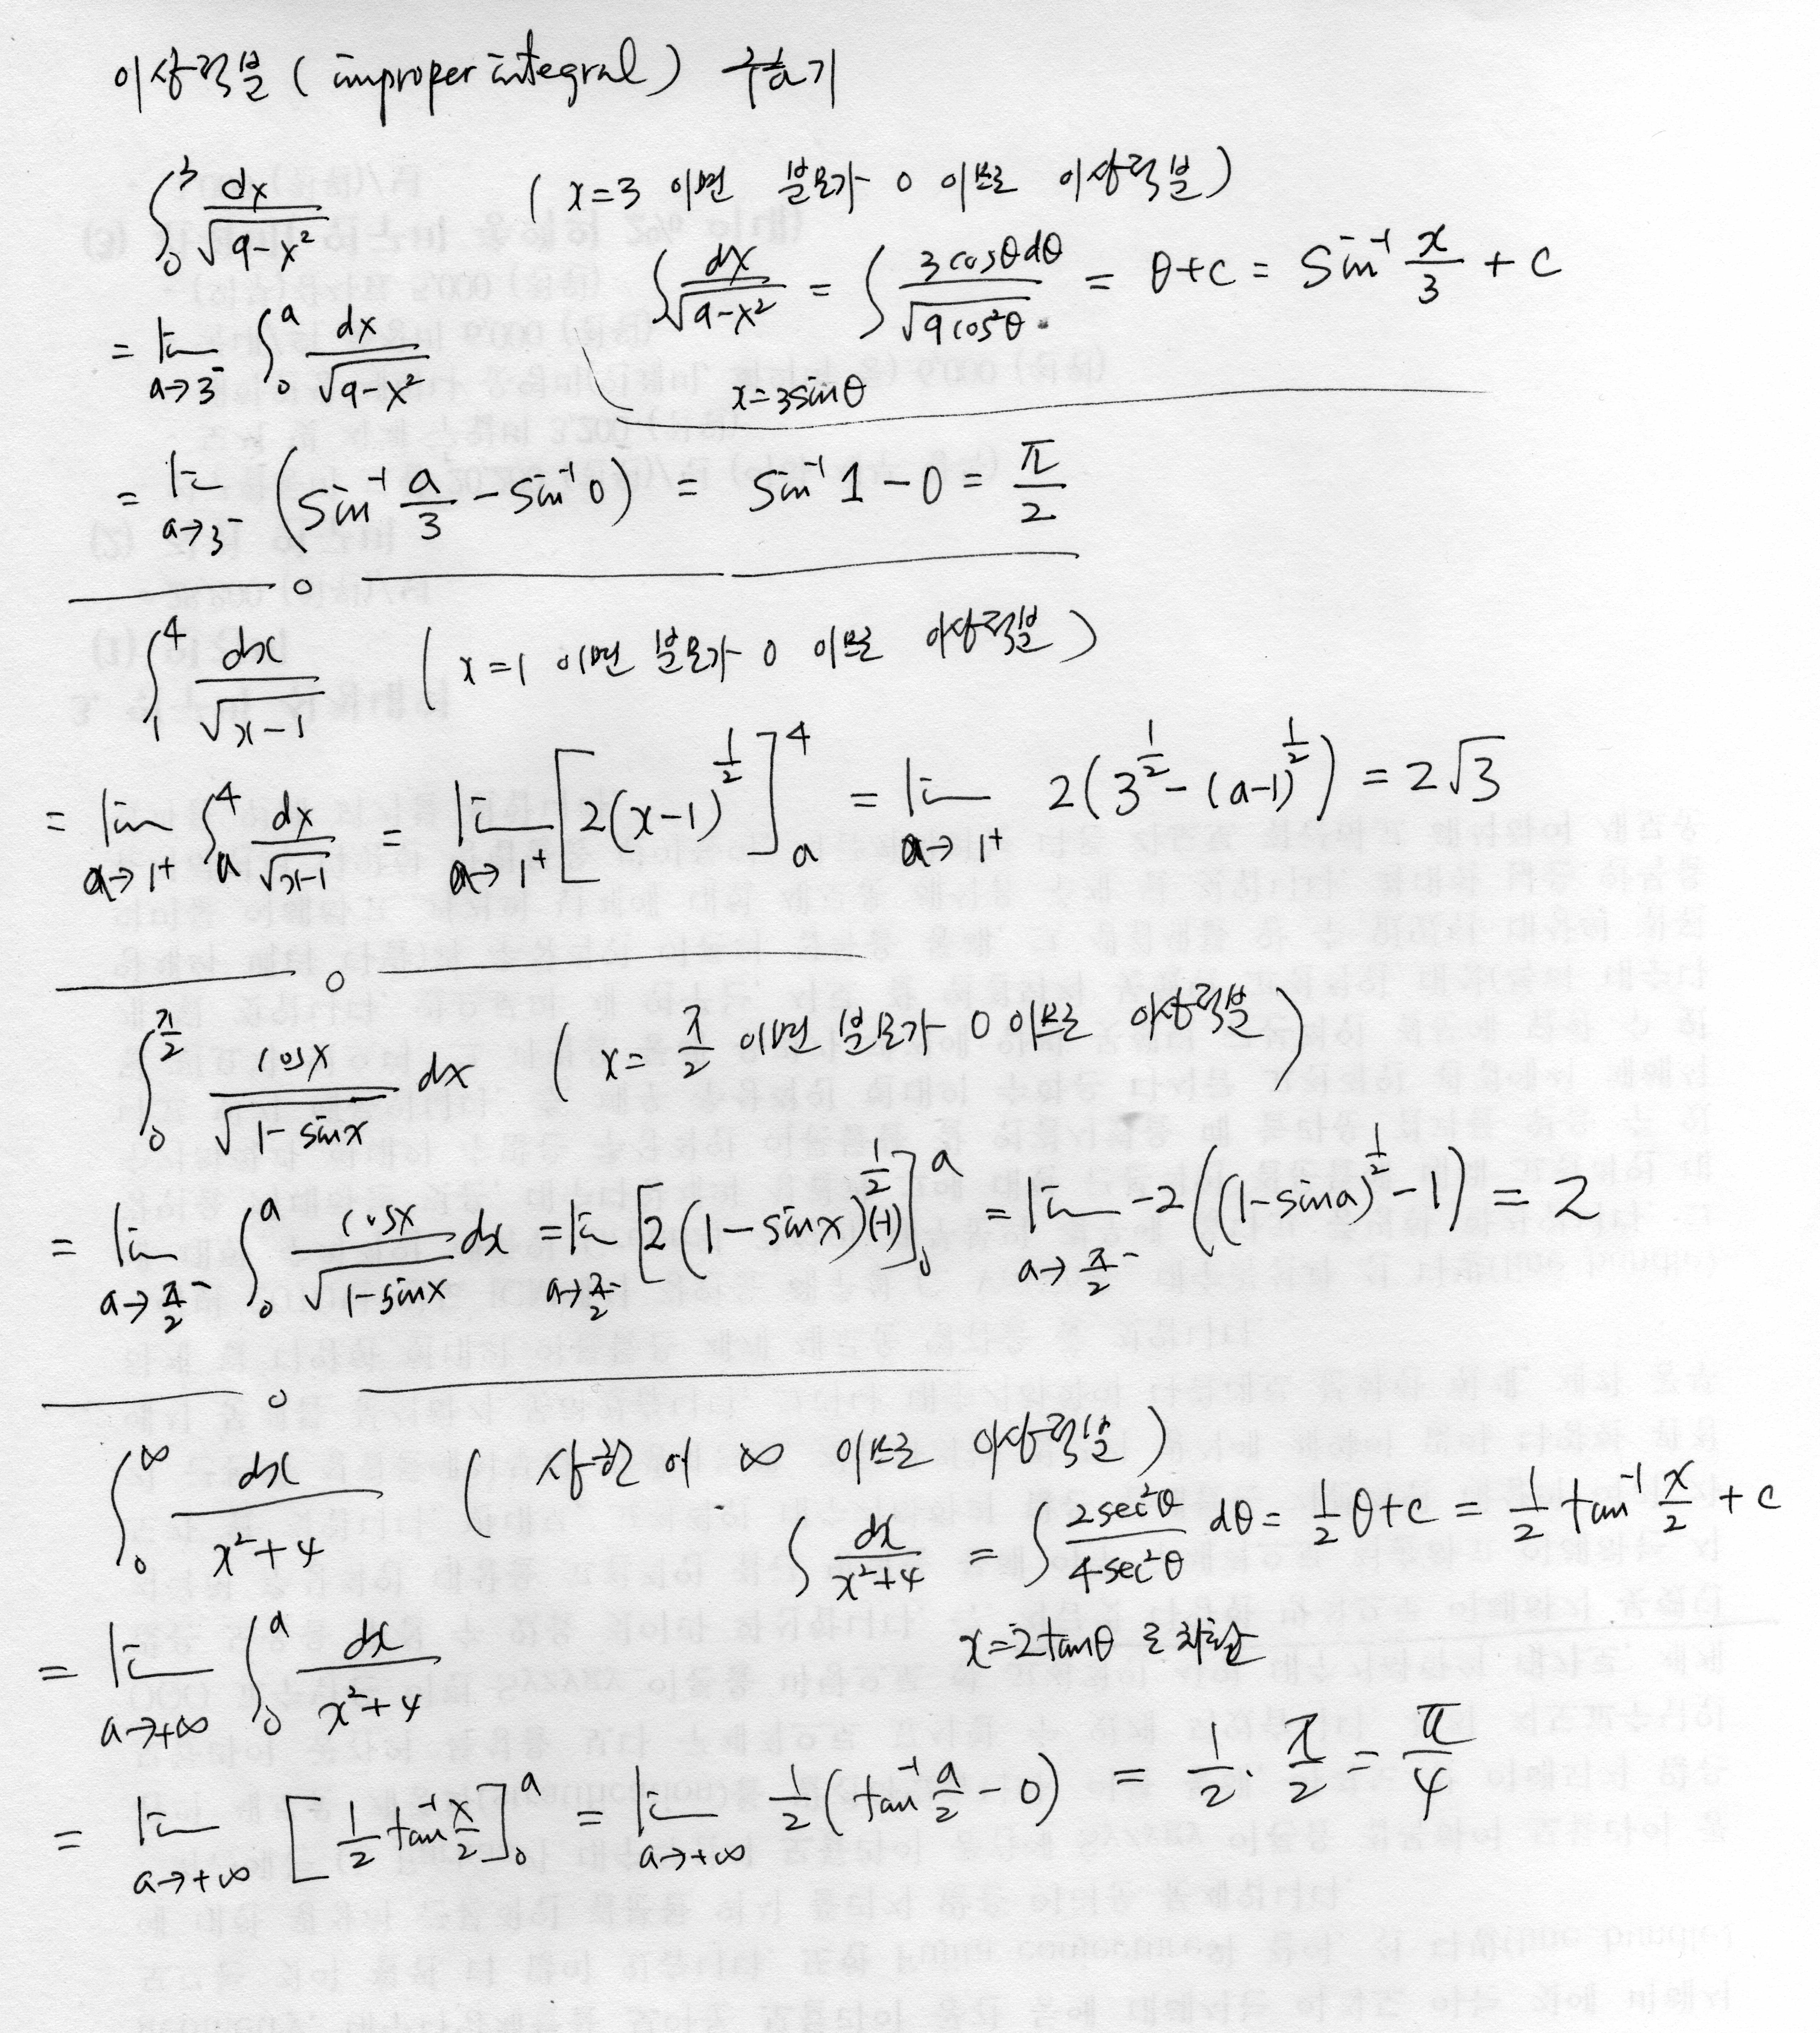 이상적분 (improper integral) 구하기
∫₀³ dx/√(9-x²) (x=3 이면 분모가 0 이므로 이상적분)
∫ dx/√(9-x²) = ∫ 3cosθdθ/√(9cos²θ) = θ+c = sin⁻¹ x/3 + c
= lim a→3⁻ ∫₀ᵃ dx/√(9-x²)
x=3sinθ
= lim a→3⁻ (sin⁻¹ a/3 - sin⁻¹0) = sin⁻¹1 - 0 = π/2
∫₁⁴ dx/√(x-1) (x=1 이면 분모가 0 이므로 이상적분)
= lim a→1+ ∫ₐ⁴ dx/√(x-1) = lim a→1+ [2(x-1)^½]ₐ⁴ = lim a→1+ 2(3^½ - (a-1)^½) = 2√3
∫₀^(π/2) cosx/√(1-sinx) dx (x=π/2 이면 분모가 0 이므로 이상적분)
= lim a→π/2⁻ ∫₀ᵃ cosx/√(1-sinx) dx = lim a→π/2⁻ [2(1-sinx)^½(-1)]₀ᵃ = lim a→π/2⁻ -2((1-sina)^½ - 1) = 2
∫₀^∞ dx/(x²+4) (상한이 ∞ 이므로 이상적분)
∫ dx/(x²+4) = ∫ 2sec²θ/4sec²θ dθ = ½θ+c = ½ tan⁻¹ x/2 + c
x=2tanθ로 치환
= lim a→+∞ ∫₀ᵃ dx/(x²+4)
= lim a→+∞ [½ tan⁻¹ x/2]₀ᵃ = lim a→+∞ ½(tan⁻¹ a/2 - 0) = ½·π/2 = π/4